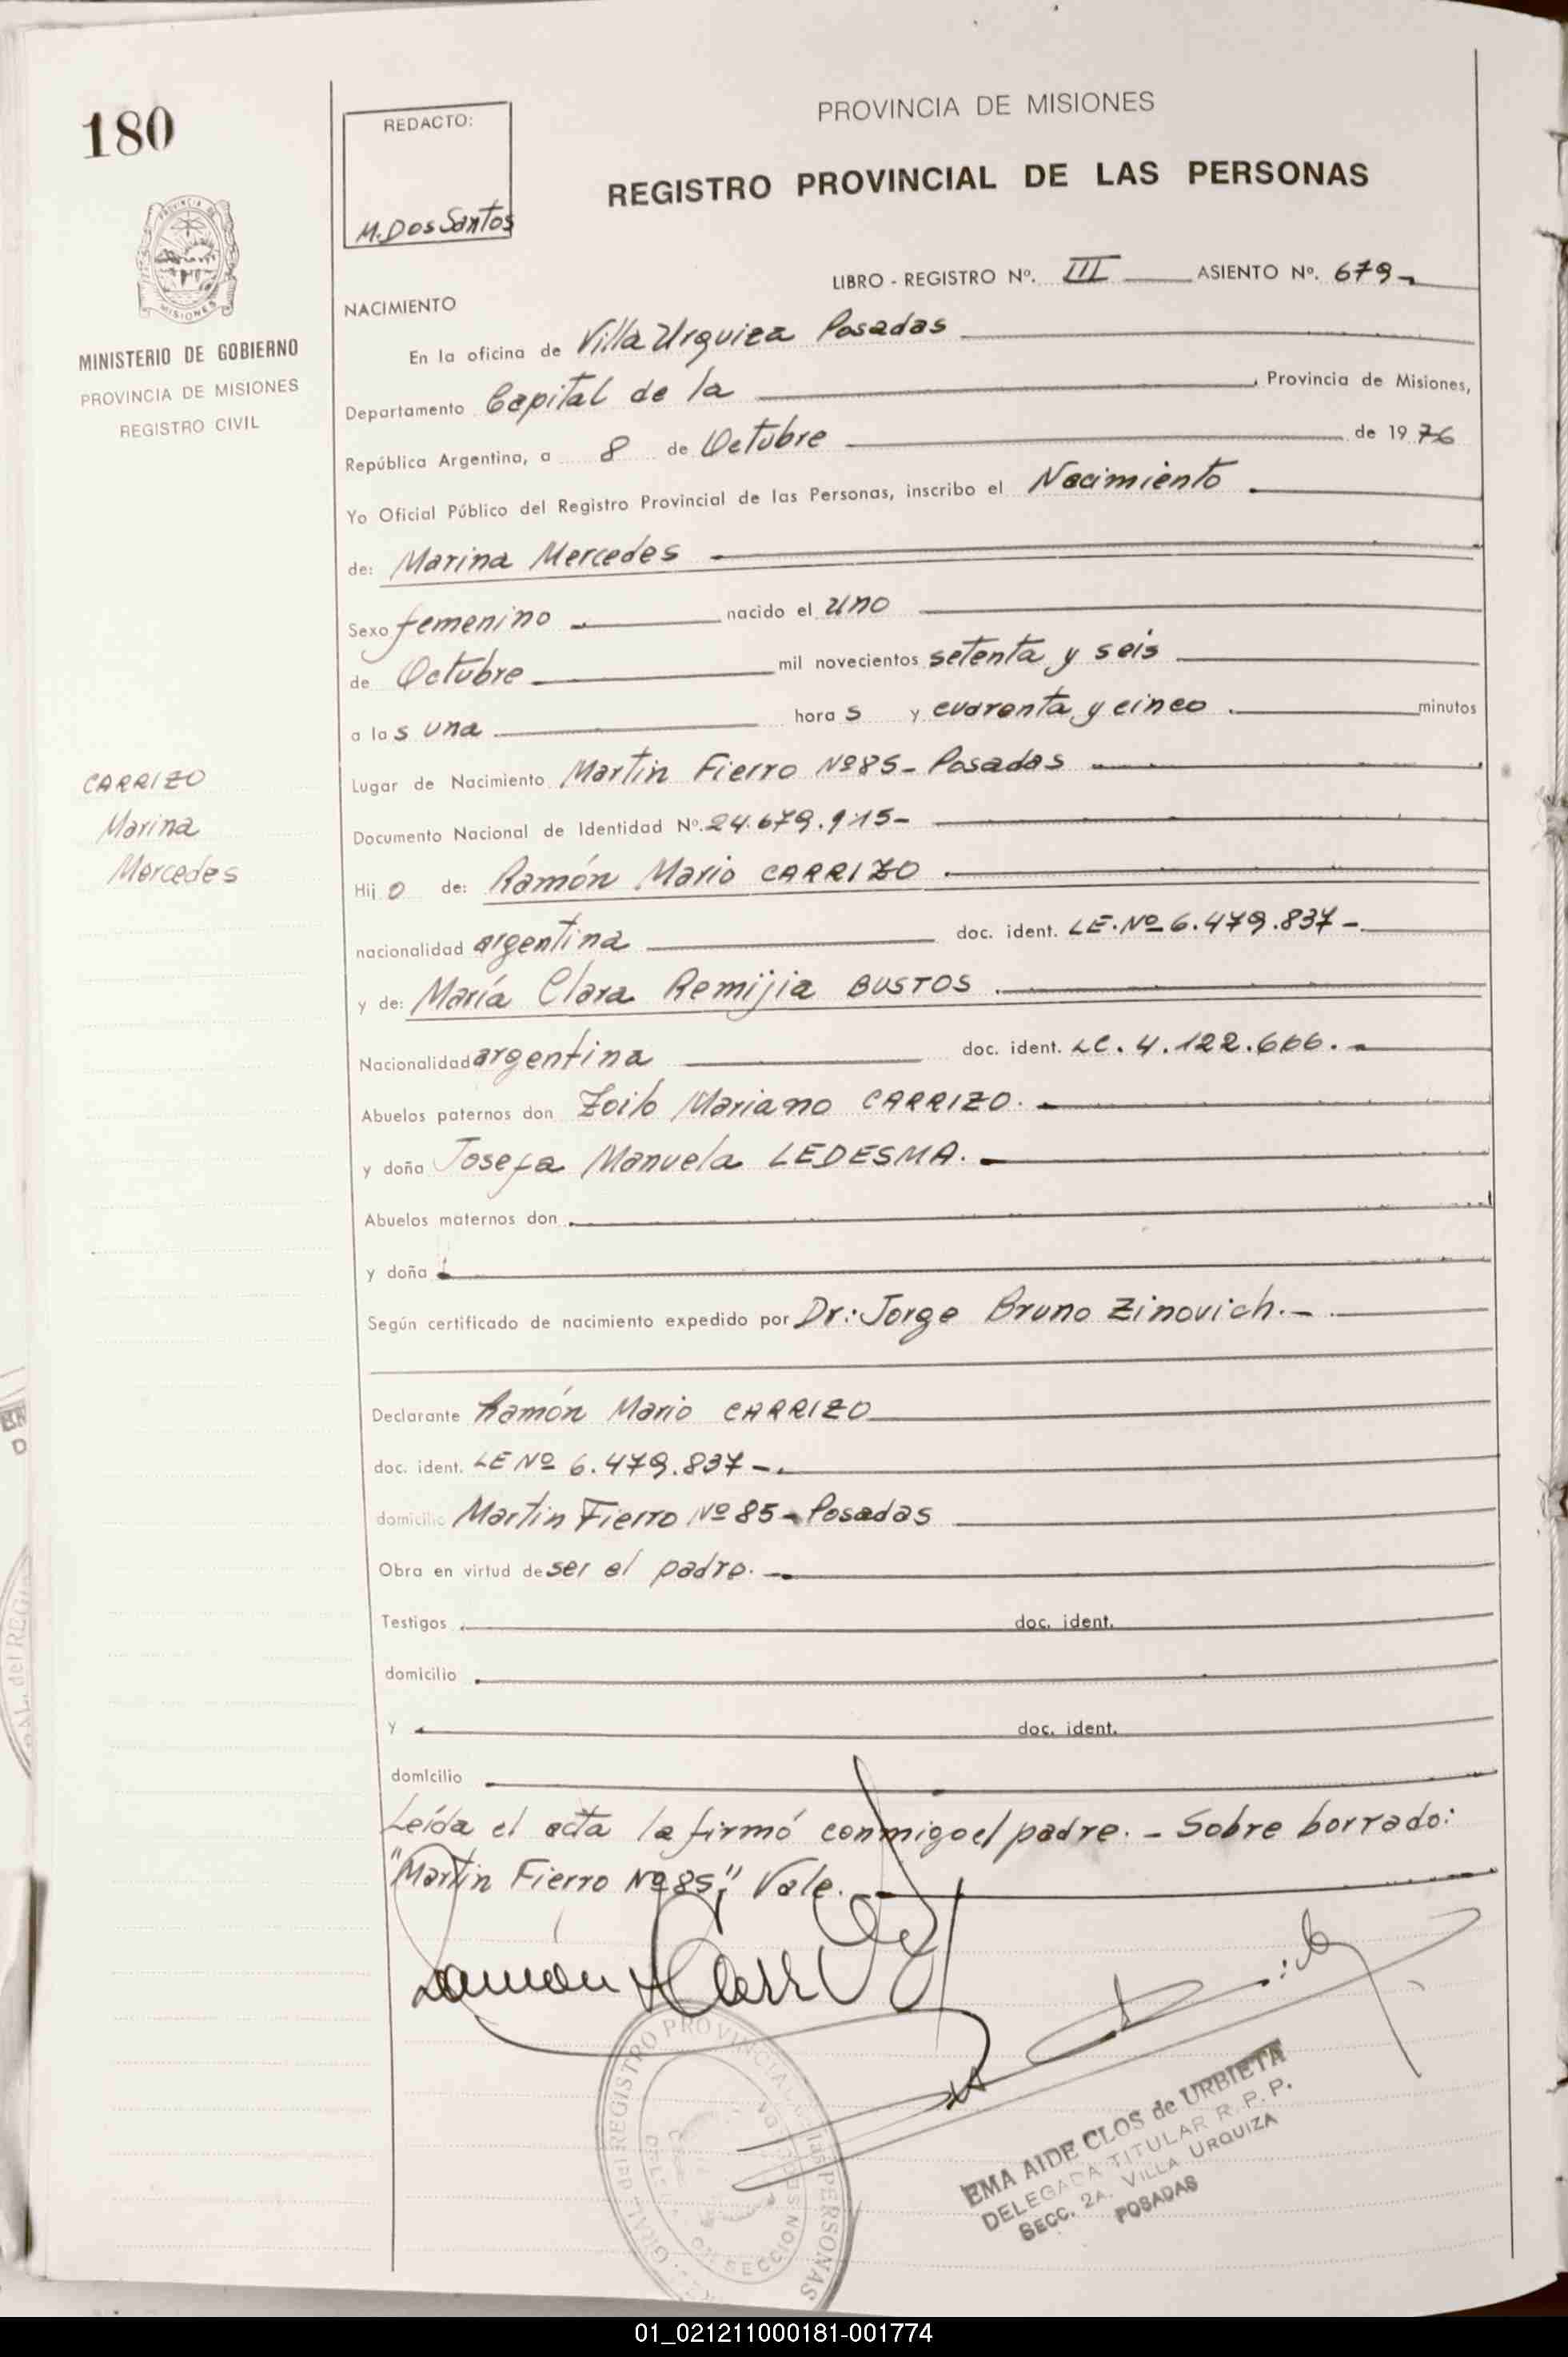 180
PROVINCIA DE MISIONES
REDACTO:
M. Dos Santos
REGISTRO PROVINCIAL DE LAS PERSONAS
MINISTERIO DE GOBIERNO
PROVINCIA DE MISIONES
REGISTRO CIVIL
LIBRO - REGISTRO Nº. III ASIENTO Nº. 679-
NACIMIENTO
En la oficina de Villa Urquiza Posadas
Departamento Capital de la, Provincia de Misiones,
República Argentina, a 8 de Octubre de 1976
Yo Oficial Público del Registro Provincial de las Personas, inscribo el Nacimiento
de: Marina Mercedes
Sexo femenino nacido el uno
de Octubre mil novecientos setenta y seis
a las una horas y cuarenta y cinco minutos
Lugar de Nacimiento Martin Fierro Nº85- Posadas
CARRIZO
Marina
Mercedes
Documento Nacional de Identidad Nº. 24.679.915-
Hijo de: Ramón Mario CARRIZO
nacionalidad argentina doc. ident. LE. Nº 6.479.837-
y de: María Clara Remijia BUSTOS
Nacionalidad argentina doc. ident. LC. 4.122.666.
Abuelos paternos don Zoilo Mariano CARRIZO.
y doña Josefa Manuela LEDESMA.
Abuelos maternos don
y doña
Según certificado de nacimiento expedido por Dr: Jorge Bruno Zinovich.-
Declarante Ramón Mario CARRIZO
doc. ident. LE Nº 6.479.837-.
domicilio Martin Fierro Nº 85- Posadas
Obra en virtud de ser el padre.
Testigos doc. ident.
domicilio
y doc. ident.
domicilio
Leída el acta la firmó conmigo el padre. - Sobre borrado:
"Martin Fierro Nº85," Vale.
Ramón M Carrizo
REGISTRO PROVINCIAL de las PERSONAS
SECCION
EMA AIDE CLOS de URBIETA
DELEGADA TITULAR R. P. P.
SECC. 2A. VILLA URQUIZA
POSADAS
01_021211000181-001774